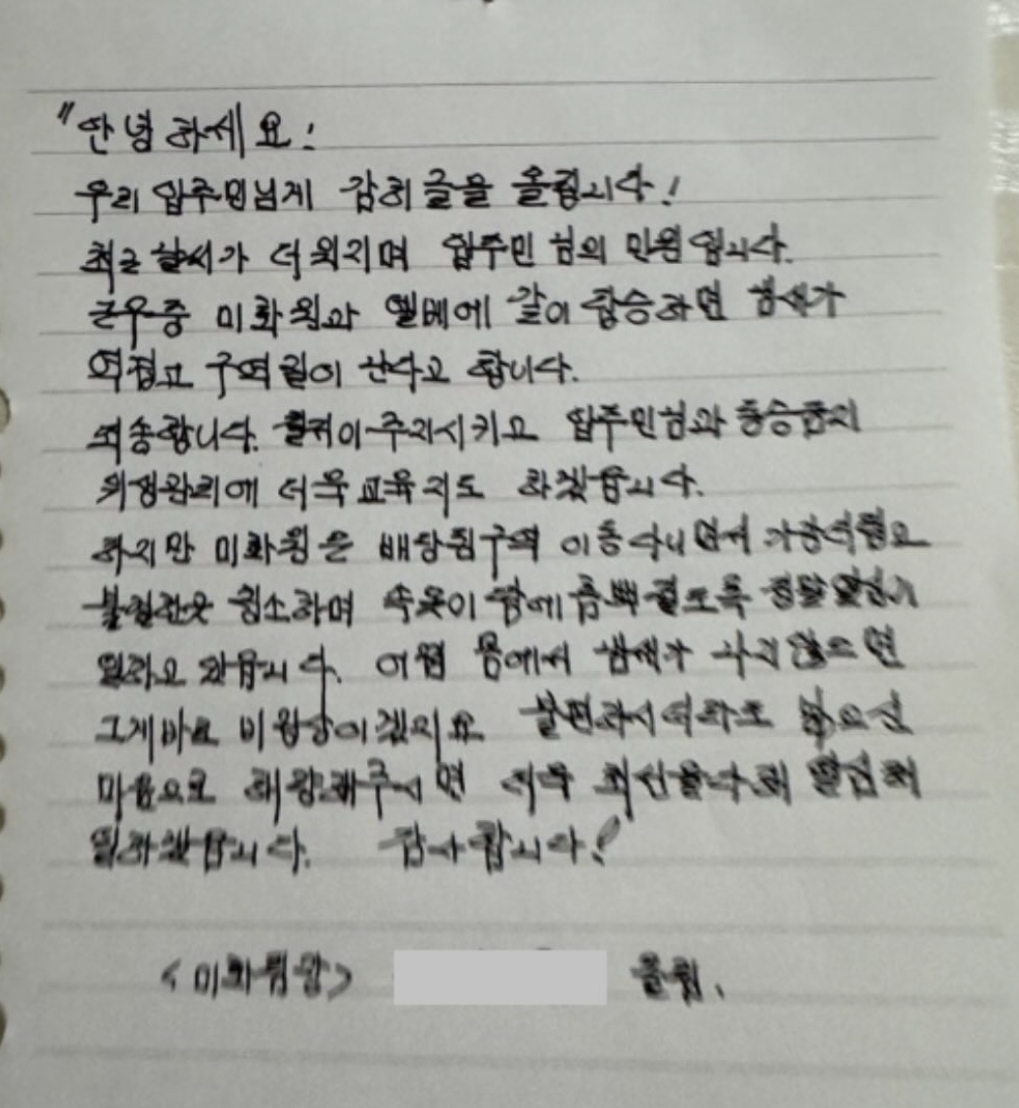 "안녕하세요!
우리 입주민님게 감히 글을 올립니다!
최근 날씨가 더워지며 입주민님의 민원입니다.
근무중 미화원과 엘베에 같이 탑승하면 냄새가
역겹고 구역질이 난다고 합니다.
죄송합니다. 철저이 주지시키고 입주민님과 동승금지
위생관리에 더욱 교육 지도 하겠습니다.
하지만 미화원은 배당된구역 이동 다니면서
청소하며 속옷이 땀에 흠뻑
일하고 있습니다. 어찜 몸에서 냄새가 나지 않으면
그게바로 비정상이겠지요 불편하시더라도 넓으신
마음으로 해량해주시면 더욱 최선을다해 열심히
일하겠습니다. 감사합니다!
<미화팀장> 올림.